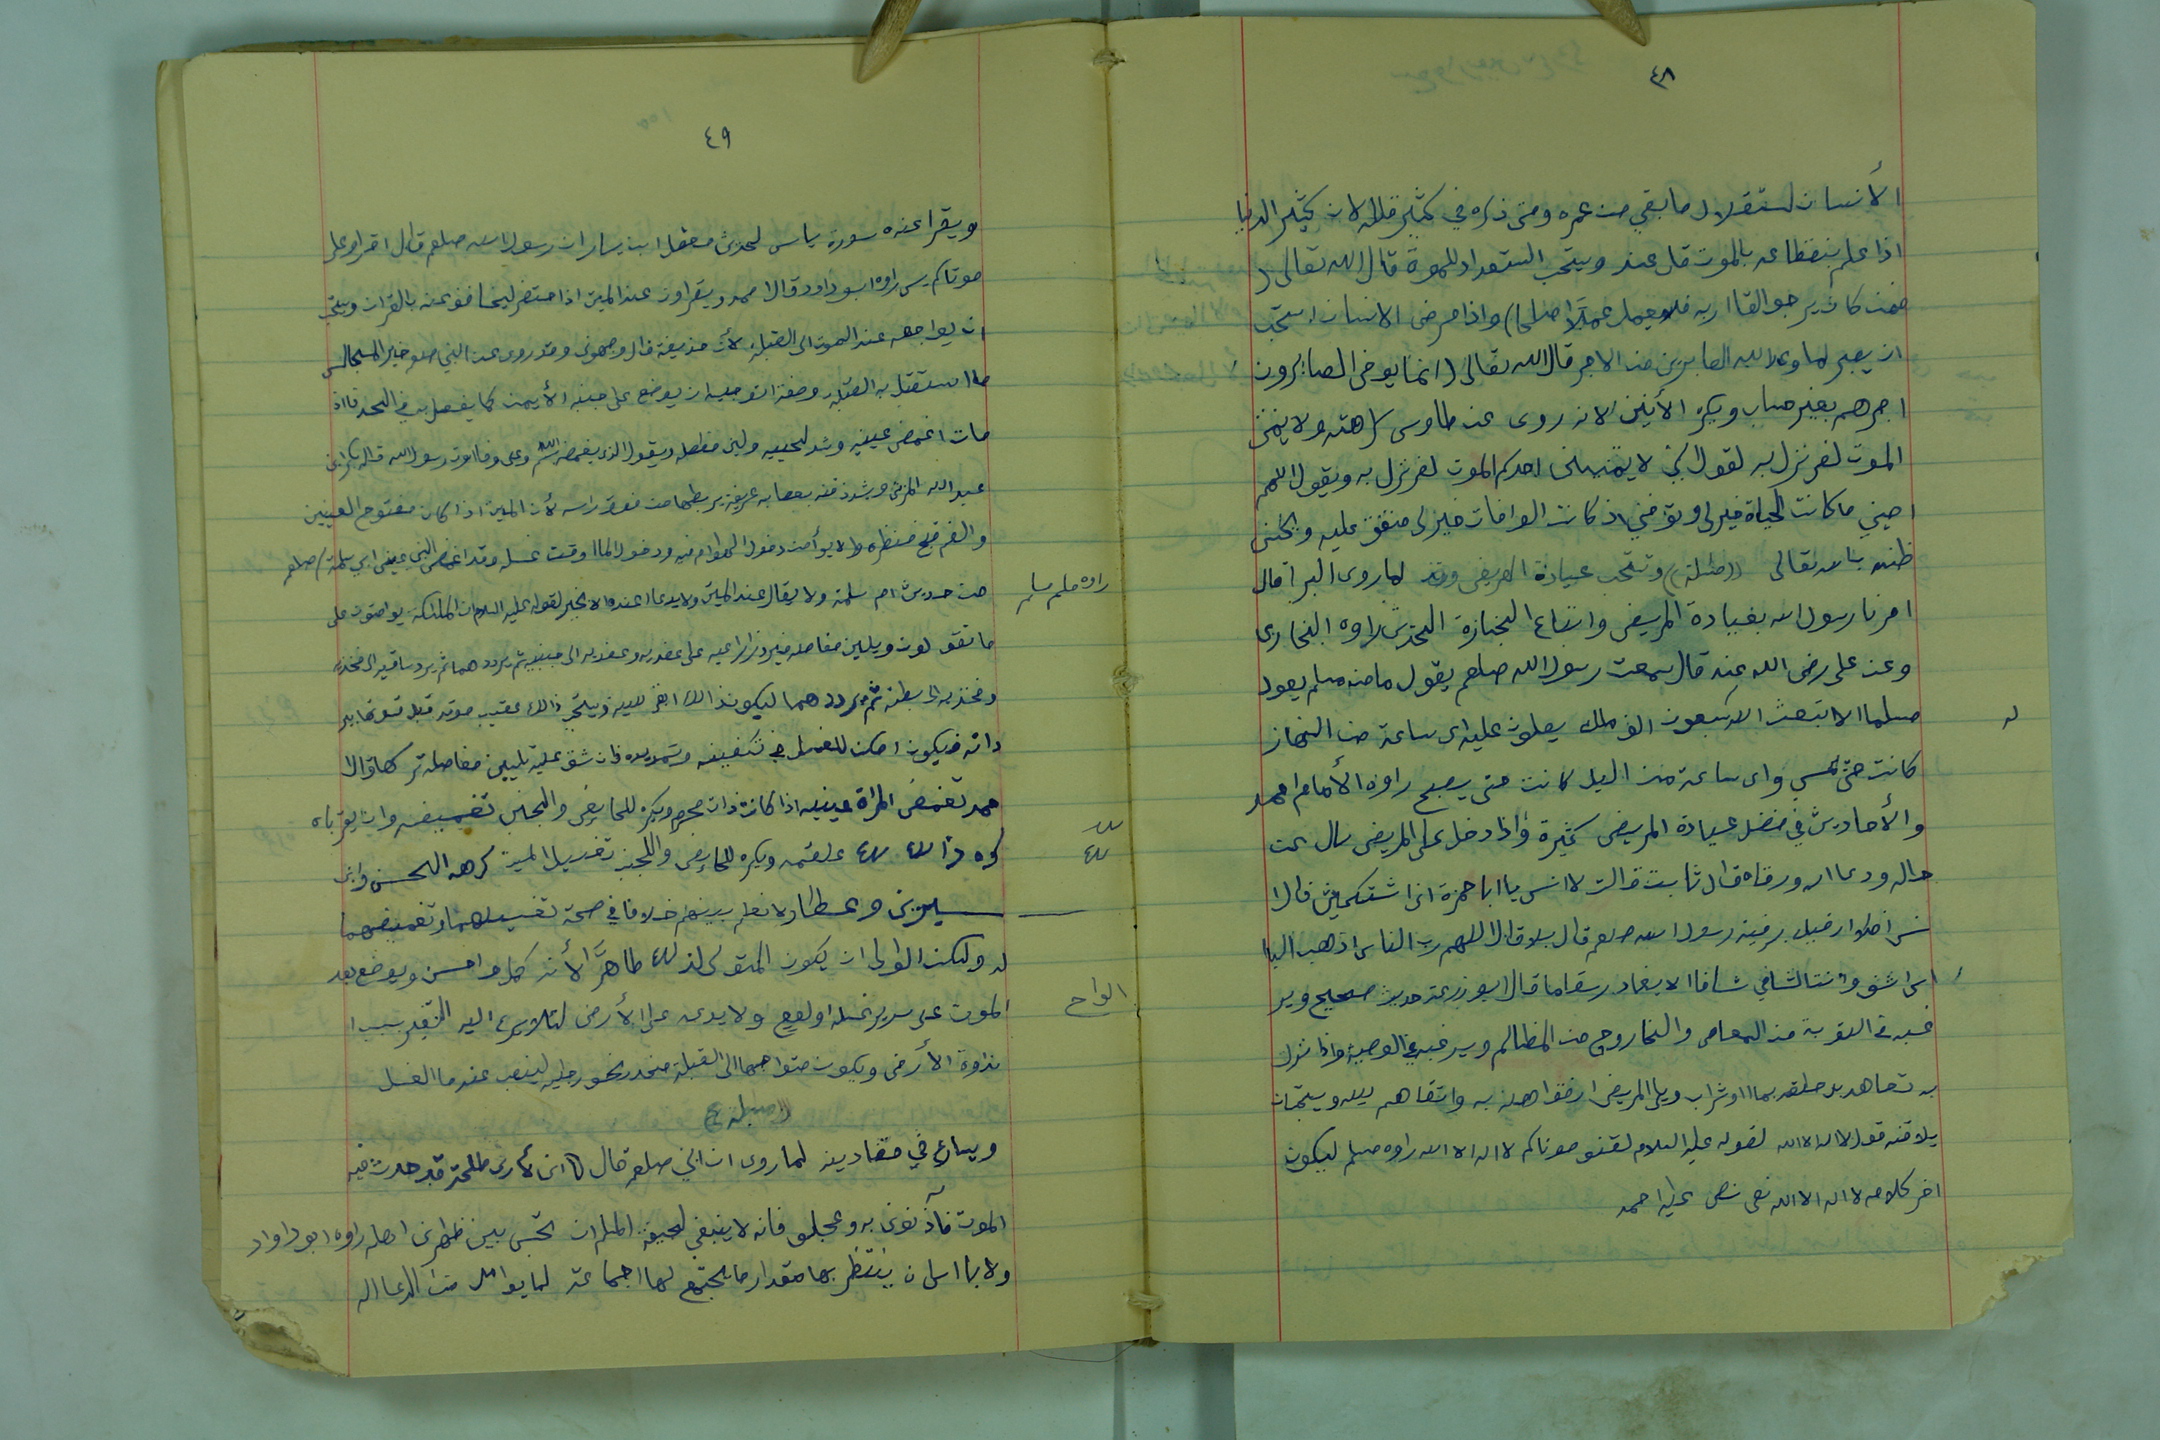 ٤٨
الأنسان استقلال ما بقي من عمره ومتى ذكره في كثير قلله لان كثير الدنيا
اذا علم بنقطاعه بالموت قل عند ويتحب استعداد للموة قال الله تعالى (
فمن كان يرجو القاا ربه فليعمل عملا صالحا) واذا مرض الانسان استحب
ان يصبر لما وعد الله الصابرين من الاجر قال الله تعالى (انما يوفى الصابرون
اجرهم بغير حساب ويكره الأنين لانه روى عن طاوس كراهته ولا يتمنى
الموت لضر نزل به لقول النبي لا يتمنين احدكم الموت لضر نزل به ويقول اللهم
احيني ما كانت الحياة خير لى وتوفني اذ كانت الوافات خير لى متفق عليه ويحسن
ظنه بالله تعالى ((مسئلة) وتستحب عيادة المريض لما روى البرا قال
امرنا رسول الله بعيادة المريض واتباع الجنازة الحديث راوه البخارى
وعن على رضى الله عنه قال سمعت رسول الله صلعم يقول ما من مسلم يعود
مسلما الا ابتعث الله سبعون الف ملك يصلون عليه اى ساعة من النهار
كانت حتى يمسي واى ساعة من اليل كانت حتى يصبح راوه الأمام احمد
والأحاديث في فضل عيادة المريض كثيرة وأذا دخل على المريض سال عن
حاله ودعا اله ورقاه قال ثابت قالت لانس يا ابا حمزة انى اشتكيت قال
انس افلا ارقيك برقية رسول الله صلعم قال بلا قال اللهم رب الناس اذهب البا
اس اشف وانت الشافي شافا الا يغادر سقاما قال ابو زرعة حديث صحيح وير
غبه في التوبة من المعاصى والخاروج من المظالم ويرغبه في الوصية واذا نزل
به تعاهد بل حلقه بماا او شراب ويلى المريض ارفق اهله به واتقاهم لله ويستحب ان
يلاقنه قول لا اله الا الله لقوله عليه السلام لقنو موتاكم لا اله الا الله راوه مسلم ليكون
اخر كلامه لا اله الا الله نص عليه احمد
٤٩
ويقرا عنده سورة ياس لحديث معقل ابن يسار ان رسول الله صلعم قال اقراو على
موتاكم يس راوه ابو داود وقال احمد ويقراون عند الميت اذا حتضر ليخافف عنه بالقران ويستحب
ان يواجهه عند الموت الى القبلة لأن حذيفة قال وجهونى وقد روى عن النبي صلعم خير المجالس
ماا ستقبل به القبلة وصفة التوجيه ان يوضع على جنبه الأيمن كما يفعل به في اللحد فااذ
مات اغمض عينيه وشد لحييه ولين مفاصله ويقول الذى يغمضه بسم الله وعلى وفاات رسول الله قاله بكر ابن
عبد الله المزني ويشد ذقنه بعصابه عريضة يربطها من فوق راسه لأن الميت اذا كان مفتوح العينين
والفم قبح منظره ولا يوأمن دخول الهوام فيه ودخول الماا وقت غسله وقد اغمض النبي عيني ابي سلمة
راوه مسلم
من حديث ام سلمة ولا يقال عند الميت ولا يدعاا عنده الا بخير لقوله عليه السلام ان الملائكة يوامنون على
ما تقولون ويلين مفاصله فيرد ذراعيه على عضديه وعضديه الى جنبيه ثم يرددهما ثم يرد ساقيه الى فخذيه
وفخذيه الى بطنه ثم يرددهما ليكون ذالك ابقى للينه ويستحب ذالك عقيب موته قبل قسوتها ببر
داته فيكون امكن للغسل في تكفينه وتمديده فان شق عليه تليين مفاصله تركها قال ا
حمد تغمض المراة عينيه اذا كانت ذات محرم ويكره للحايض والجنب تغميضه وان يقرباه
كره ذالك علقمه ويكره للحايض والجنب تغسيل الميت كرهه الحسن وابن
سيرين وعطاا ولا نعلم بينهم خلافا في صحة تغسيلهما وتغميضهما
له ولكن الاولى ان يكون المتولى لذلك طاهرًا لأنه كمل واحسن ويوضع بعد
الواح
الموت على سرير غسله او لوح ولا يدعى على الأرض لئلا يسرى اليه التغير بسبب
نداوة الأرض ويكون متواجها الى القبلة منحدر نحو رجليه لينصب عنه ما الغسل
(مسئلة)
ويسارع في تجهيزه لما روى ان النبي صلعم قال انى لأرى طلحة قد حدث فيه
الموت فآذنونى به وعجلو فانه لا ينبغي لجيفة المسلم ان تحبس بين ظهرى اهله راوه ابو داواد
ولا باس ان ينتظر بها مقدار ما يجتمع لها جماعة لما يوامل من الدعا اله